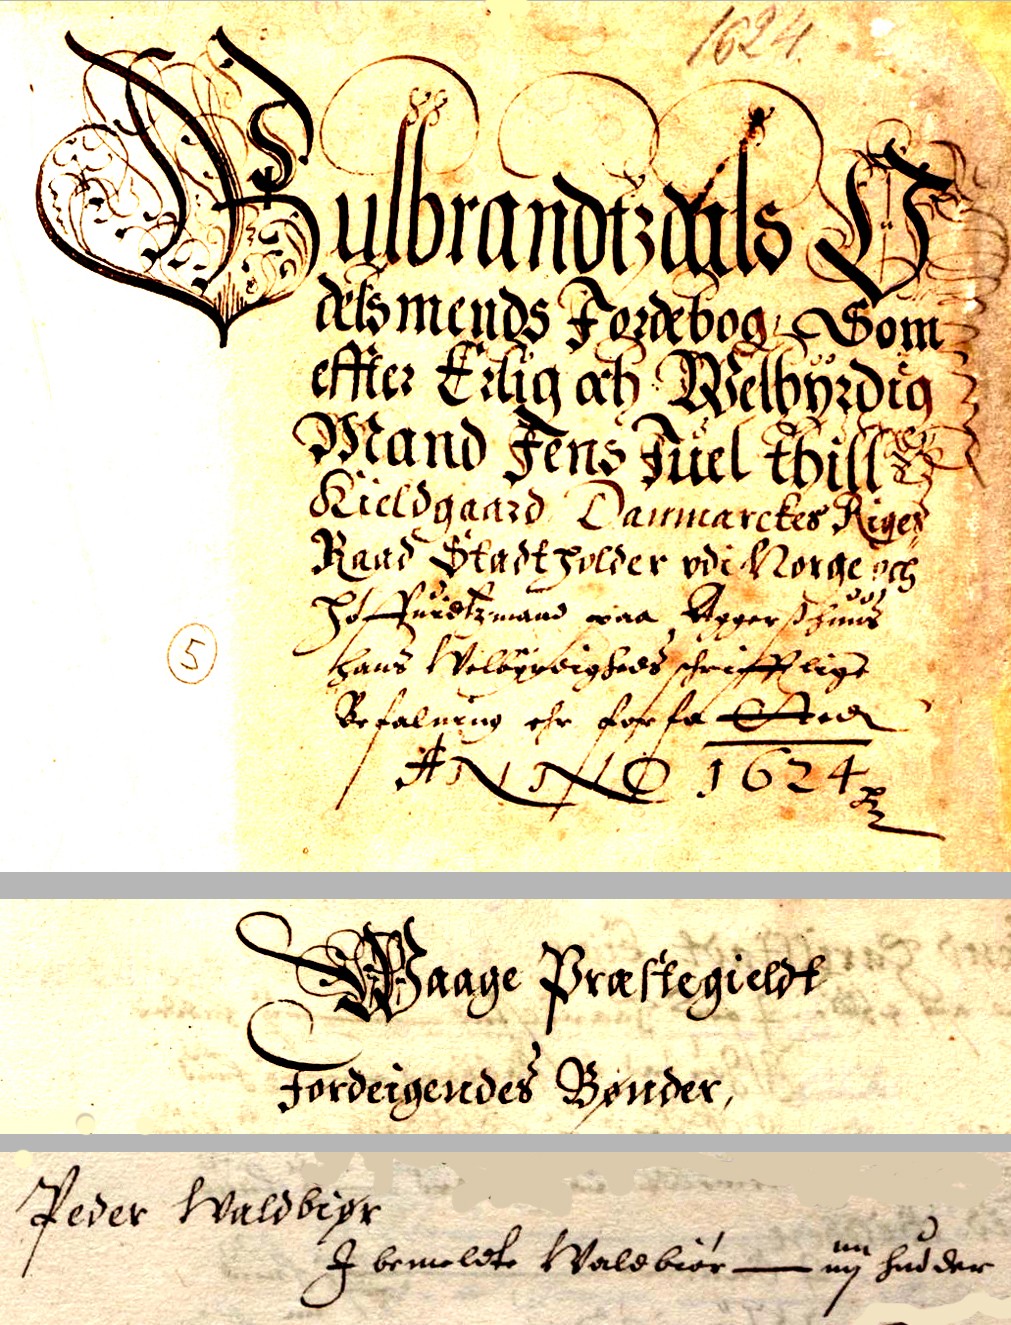 1624.
Gulbrandtzdals O
delsmends Jordebog, Som
effter Erlig och Welbÿrdig
Mand Jens Juel thill
Kieldgaard Danmarckes Riges
Raad Stadtholder vdi Norge och
Høffuidtzmand paa Aggerszhuus
hans Welbÿrdigheds schrifftlige
Befalning ehr forfattedt
ANNO 1624
5
Waage Præstegieldt
Jordeigendes Bønder,
Peder Waldbiør
J bemeldte Waldbiør — iiij huder